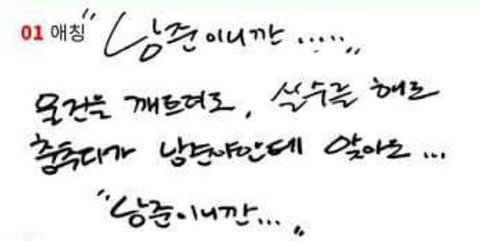 01 애칭 "남준이니깐 ....."
물건을 깨트려도, 실수를 해도
춤추다가 남준아한테 맞아도 ...
"남준이니깐..."